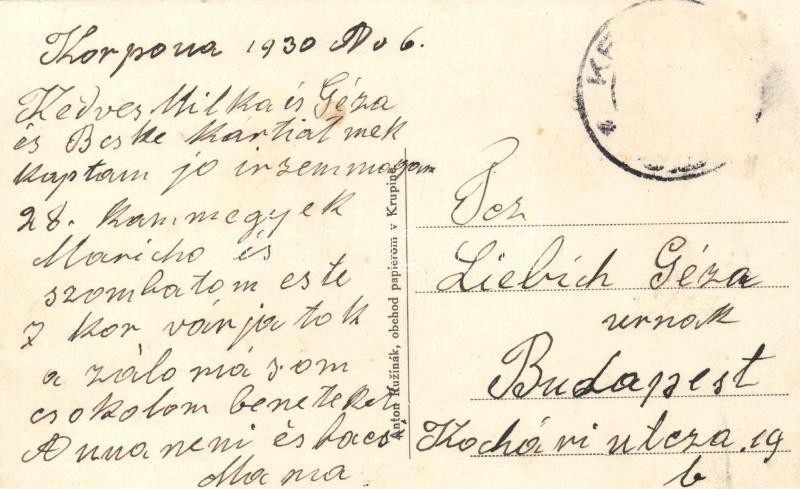 Korpona 1930 No 6.
Kedves Milka és Géza
és Beske kártiátmek
kaptam jo irzemmagom
28. kammegyek
Maricho és
szombatom este
7 kor várjatok
a zálomásom
csokolom beneteket
Anna neni és bacsi
Mama
Anton Ružinák, obchod papierom v Krupine
Liebich Géza
urnak
Budapest
Kochári utcza. 19
b